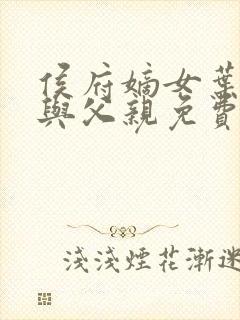 侯府嫡女葉
與父親免費
淺淺煙花漸迷